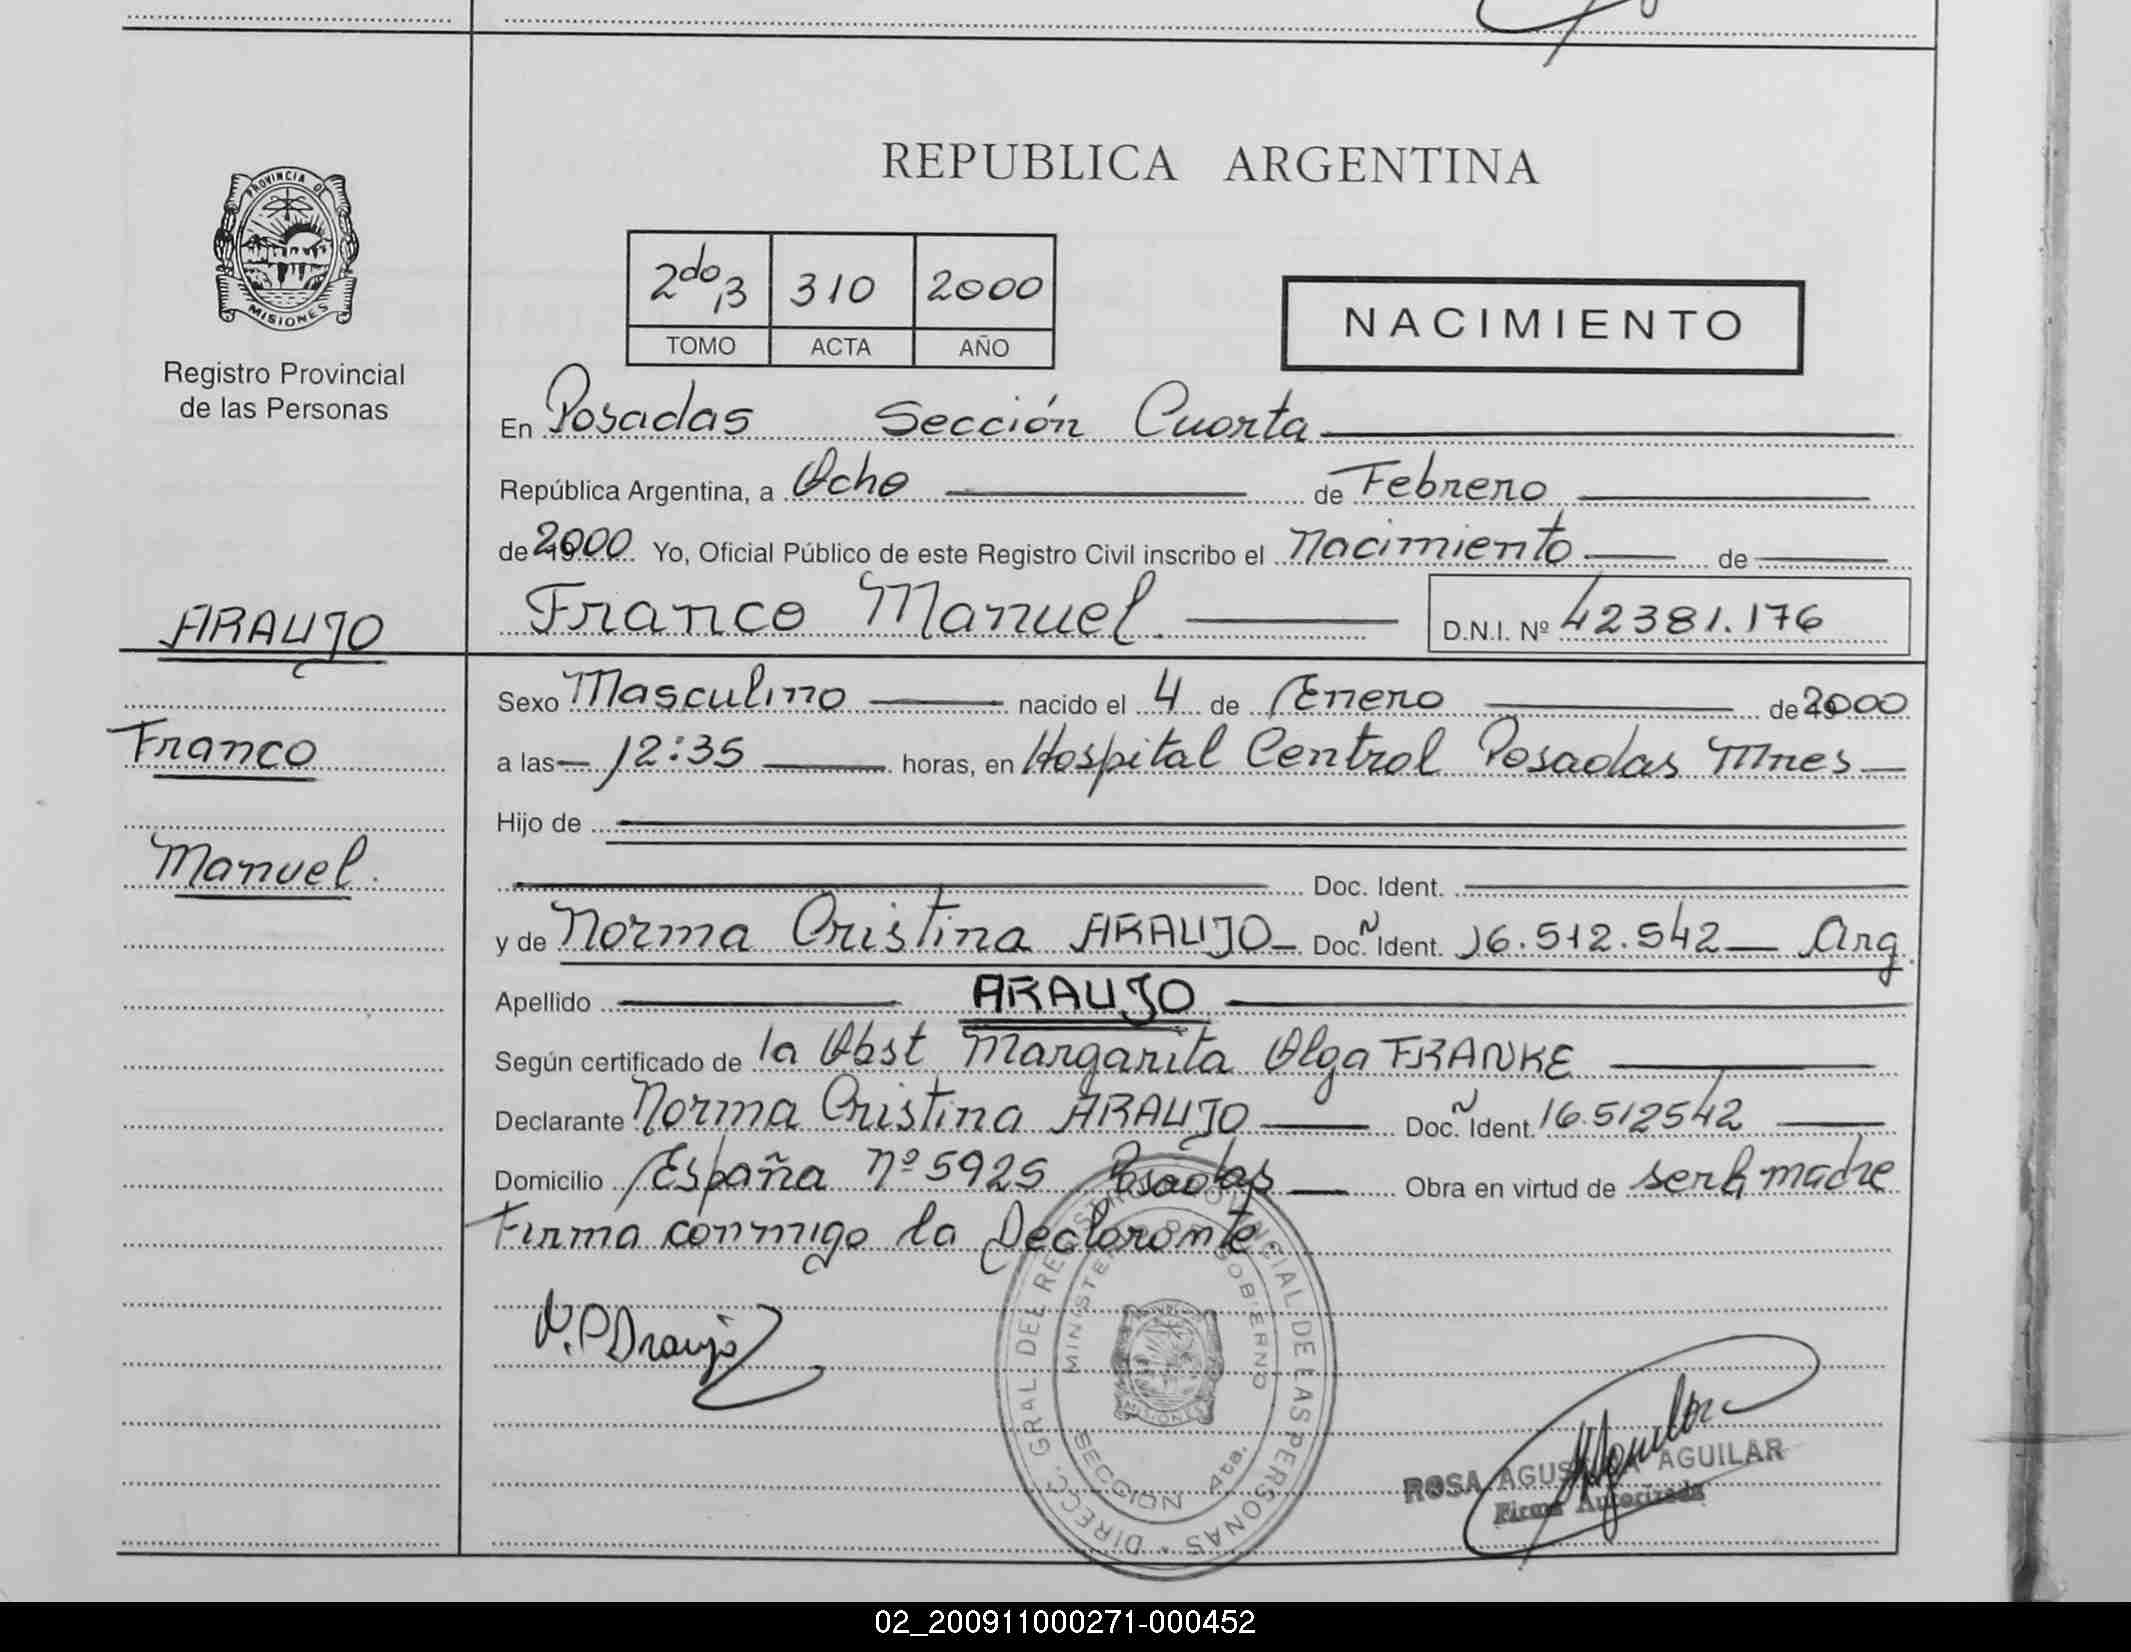 REPUBLICA ARGENTINA
PROVINCIA DE
MISIONES
Registro Provincial
de las Personas
2do B 310 2000
TOMO ACTA AÑO
NACIMIENTO
En Posadas Sección Cuarta
República Argentina, a Ocho de Febrero
de 2000 Yo, Oficial Público de este Registro Civil inscribo el Nacimiento de
ARAUJO
Franco Manuel. D.N.I. Nº 42381.176
Sexo Masculino nacido el 4 de Enero de 2000
Franco
a las 12:35 horas, en Hospital Central Posadas Mnes
Hijo de
Manuel.
Doc. Ident.
y de Norma Cristina ARAUJO Doc. N Ident. 16.512.542 Arg.
Apellido ARAUJO
Según certificado de la Obst Margarita Olga FRANKE
Declarante Norma Cristina ARAUJO Doc. N Ident. 16.512542
Domicilio España Nº 5925 Posadas Obra en virtud de ser la madre
Firma conmigo la Declarante.
DIRECC. GRAL DEL REGISTRO PROVINCIAL DE LAS PERSONAS
MINISTERIO DE GOBIERNO
MISIONES
SECCION 4ta.
ROSA AGUSTINA AGUILAR
Firma Autorizada
02_200911000271-000452